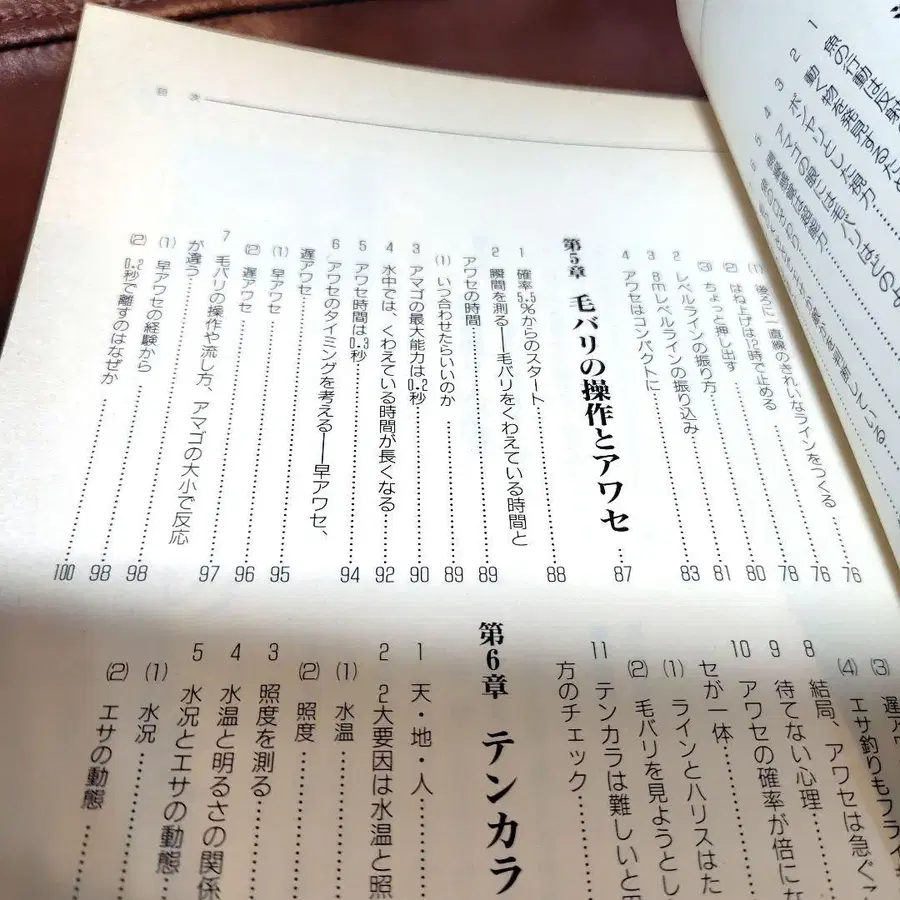 目次
1 魚の行動は反射
2 動く物を発見する
3 ボンヤリとした視力
4 アマゴの眼には毛バリはどの
(1) 後ろに一直線のきれいなラインをつくる 76
(2) はね上げは12時で止める 76
(3) ちょっと押し出す 78
2 レベルラインの振り方 80
3 8mレベルラインの振り込み 81
4 アワセはコンパクトに 83
87
第5章 毛バリの操作とアワセ
1 確率5.5%からのスタート 88
2 瞬間を測る――毛バリをくわえている時間と
アワセの時間 89
(1) いつ合わせたらいいのか 89
3 アマゴの最大能力は0.2秒 90
4 水中では、くわえている時間が長くなる 92
5 アワセ時間は0.3秒 94
6 アワセのタイミングを考える――早アワセ、
遅アワセ 95
(1) 早アワセ 95
(2) 遅アワセ 96
7 毛バリの操作や流し方、アマゴの大小で反応
が違う 97
(1) 早アワセの経験から 98
(2) 0.2秒で離すのはなぜか 98
100
(3) 遅ア
(4) エサ釣りもフライ
8 結局、アワセは急ぐ
9 待てない心理
10 アワセの確率が倍にな
セが一体
(1) ラインとハリスはた
(2) 毛バリを見ようとし
11 テンカラは難しいと
方のチェック
第6章 テンカラ
1 天・地・人
2 2大要因は水温と照
(1) 水温
(2) 照度
3 照度を測る
4 水温と明るさの関係
5 水況とエサの動態
(1) 水況
(2) エサの動態